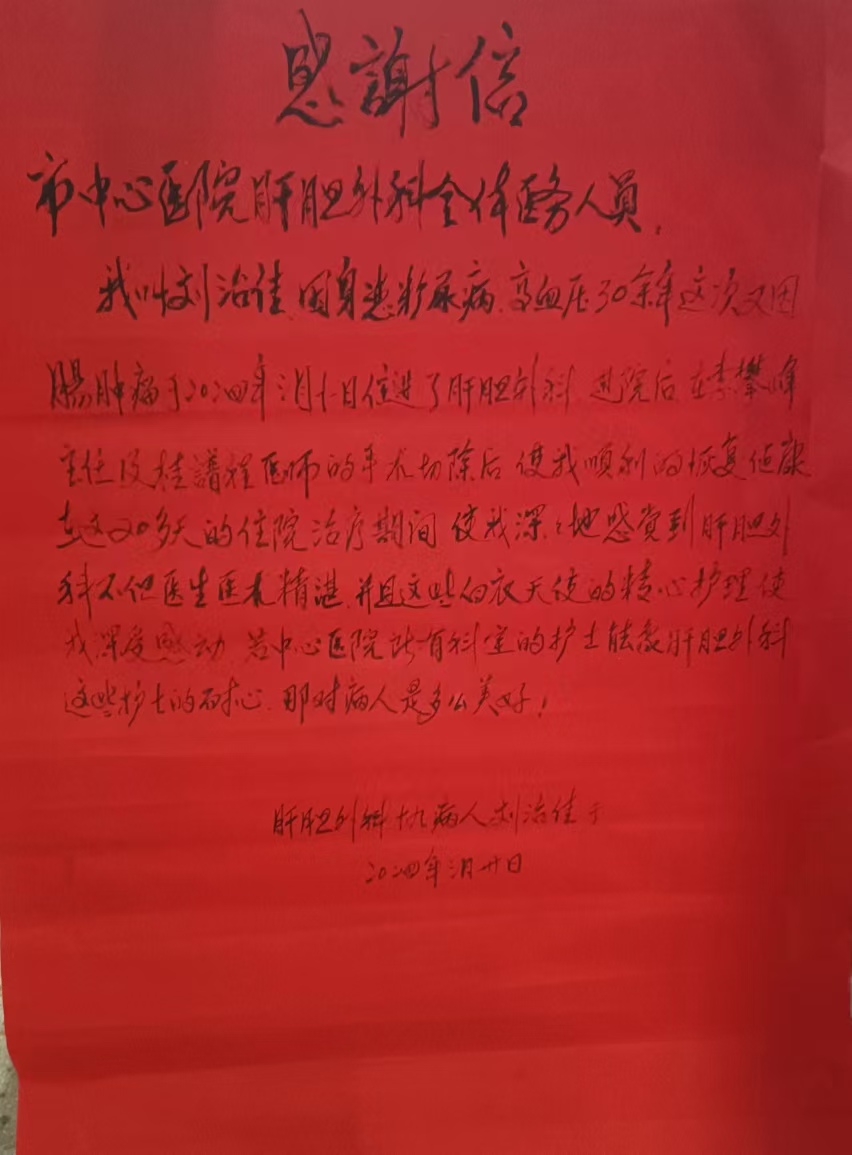 感謝信
市中心医院肝胆外科全体医务人员,
我叫刘治佳,因身患糖尿病、高血压30余年这次又因
腸肿瘤于2024年 月十日住进了肝胆外科 进院后 在李攀峰
主任及桂譜程医师的手术切除后 使我顺利的恢复健康
在这20多天的住院治疗期间 使我深深地感覚到肝胆外
科不但医生医术精湛,并且这些白衣天使的精心护理使
我深受感动 若中心医院所有科室的护士能象肝胆外科
这些护士的耐心,那对病人是多么美好!
肝胆外科 病人刘治佳于
2024年 月廿日